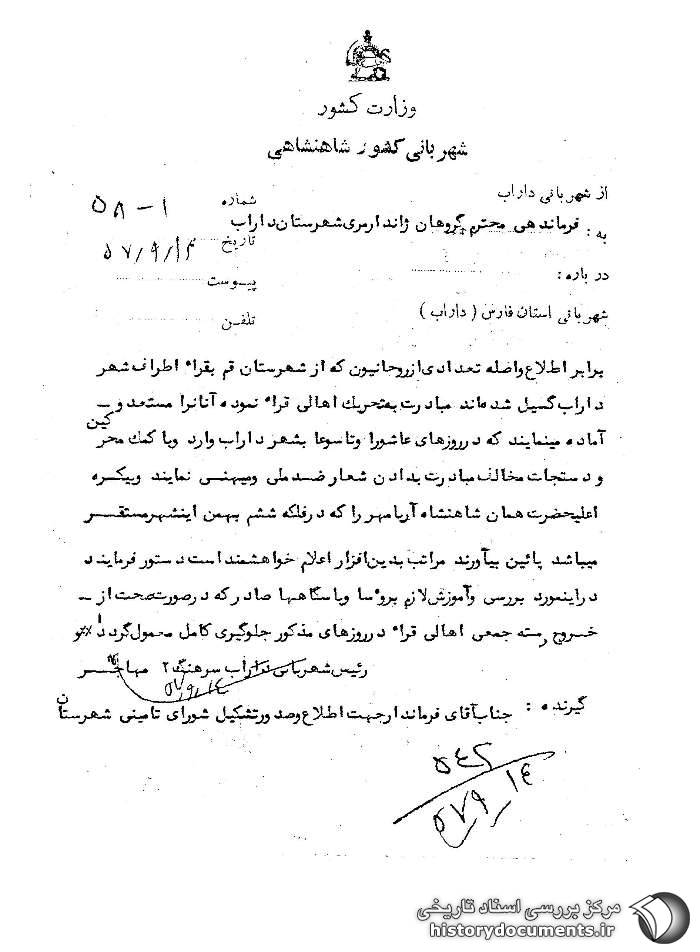 وزارت کشور
شهربانی کشور شاهنشاهی
از شهربانی داراب
شماره ۱ – ۵۸
به: فرماندهی محترم گروهان ژاندارمری شهرستان داراب
تاریخ ۵۷/۹/۱۴
درباره:
پیوست
شهربانی استان فارس (داراب)
تلفن
برابر اطلاع واصله تعدادی از روحانیون که از شهرستان قم بقراء اطراف شهر
داراب گسیل شده‌اند مبادرت به تحریک اهالی قراء نموده آنانرا مستعد و –
آماده مینمایند که در روزهای عاشورا وتاسوعا بشهر داراب وارد وبا کمک محرکین
و دستجات مخالف مبادرت بدادن شعار ضد ملی ومیهنی نمایند وپیکره
اعلیحضرت همان شاهنشاه آریامهر را که در فلکه ششم بهمن اینشهر مستقر
میباشد پائین بیآورند مراتب بدین‌افزار اعلام خواهشمند است دستور فرمایند
در اینمورد بررسی وآموزش لازم بروسا وپاسگاهها صادر که در صورت صحت از –
خروج دسته جمعی اهالی قراء در روزهای مذکور جلوگیری کامل معمول گردد
رئیس شهربانی داراب سرهنگ ۲ مهاجر
۵۷/۹/۱۴
گیرنده: جناب آقای فرماندار جهت اطلاع وصدور تشکیل شورای تامینی شهرستان
۵۴۲
۵۷/۹/۱۴
مرکز بررسی اسناد تاریخی
historydocuments.ir